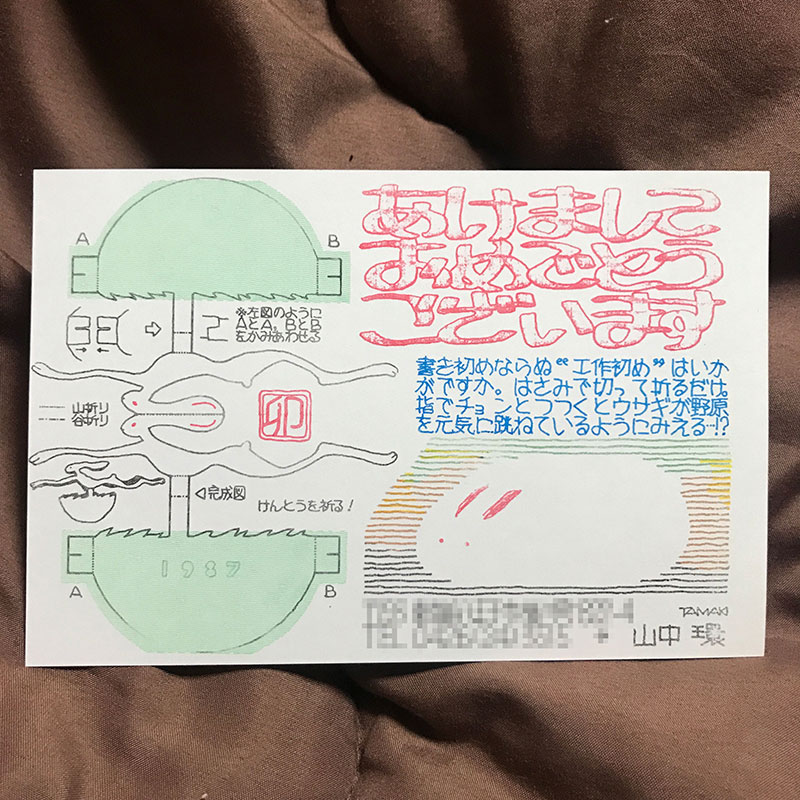 A
B
※左図のように
AとA、BとB
をかみあわせる
山折り
谷折り
卯
◁完成図
けんとうを祈る!
1987
A
B
あけまして
おめでとう
ございます
書き初めならぬ“工作初め”はいか
がですか。はさみで切って折るだけ。
指でチョンとつつくとウサギが野原
を元気に跳ねているようにみえる…!?
TAMAKI
山中 環